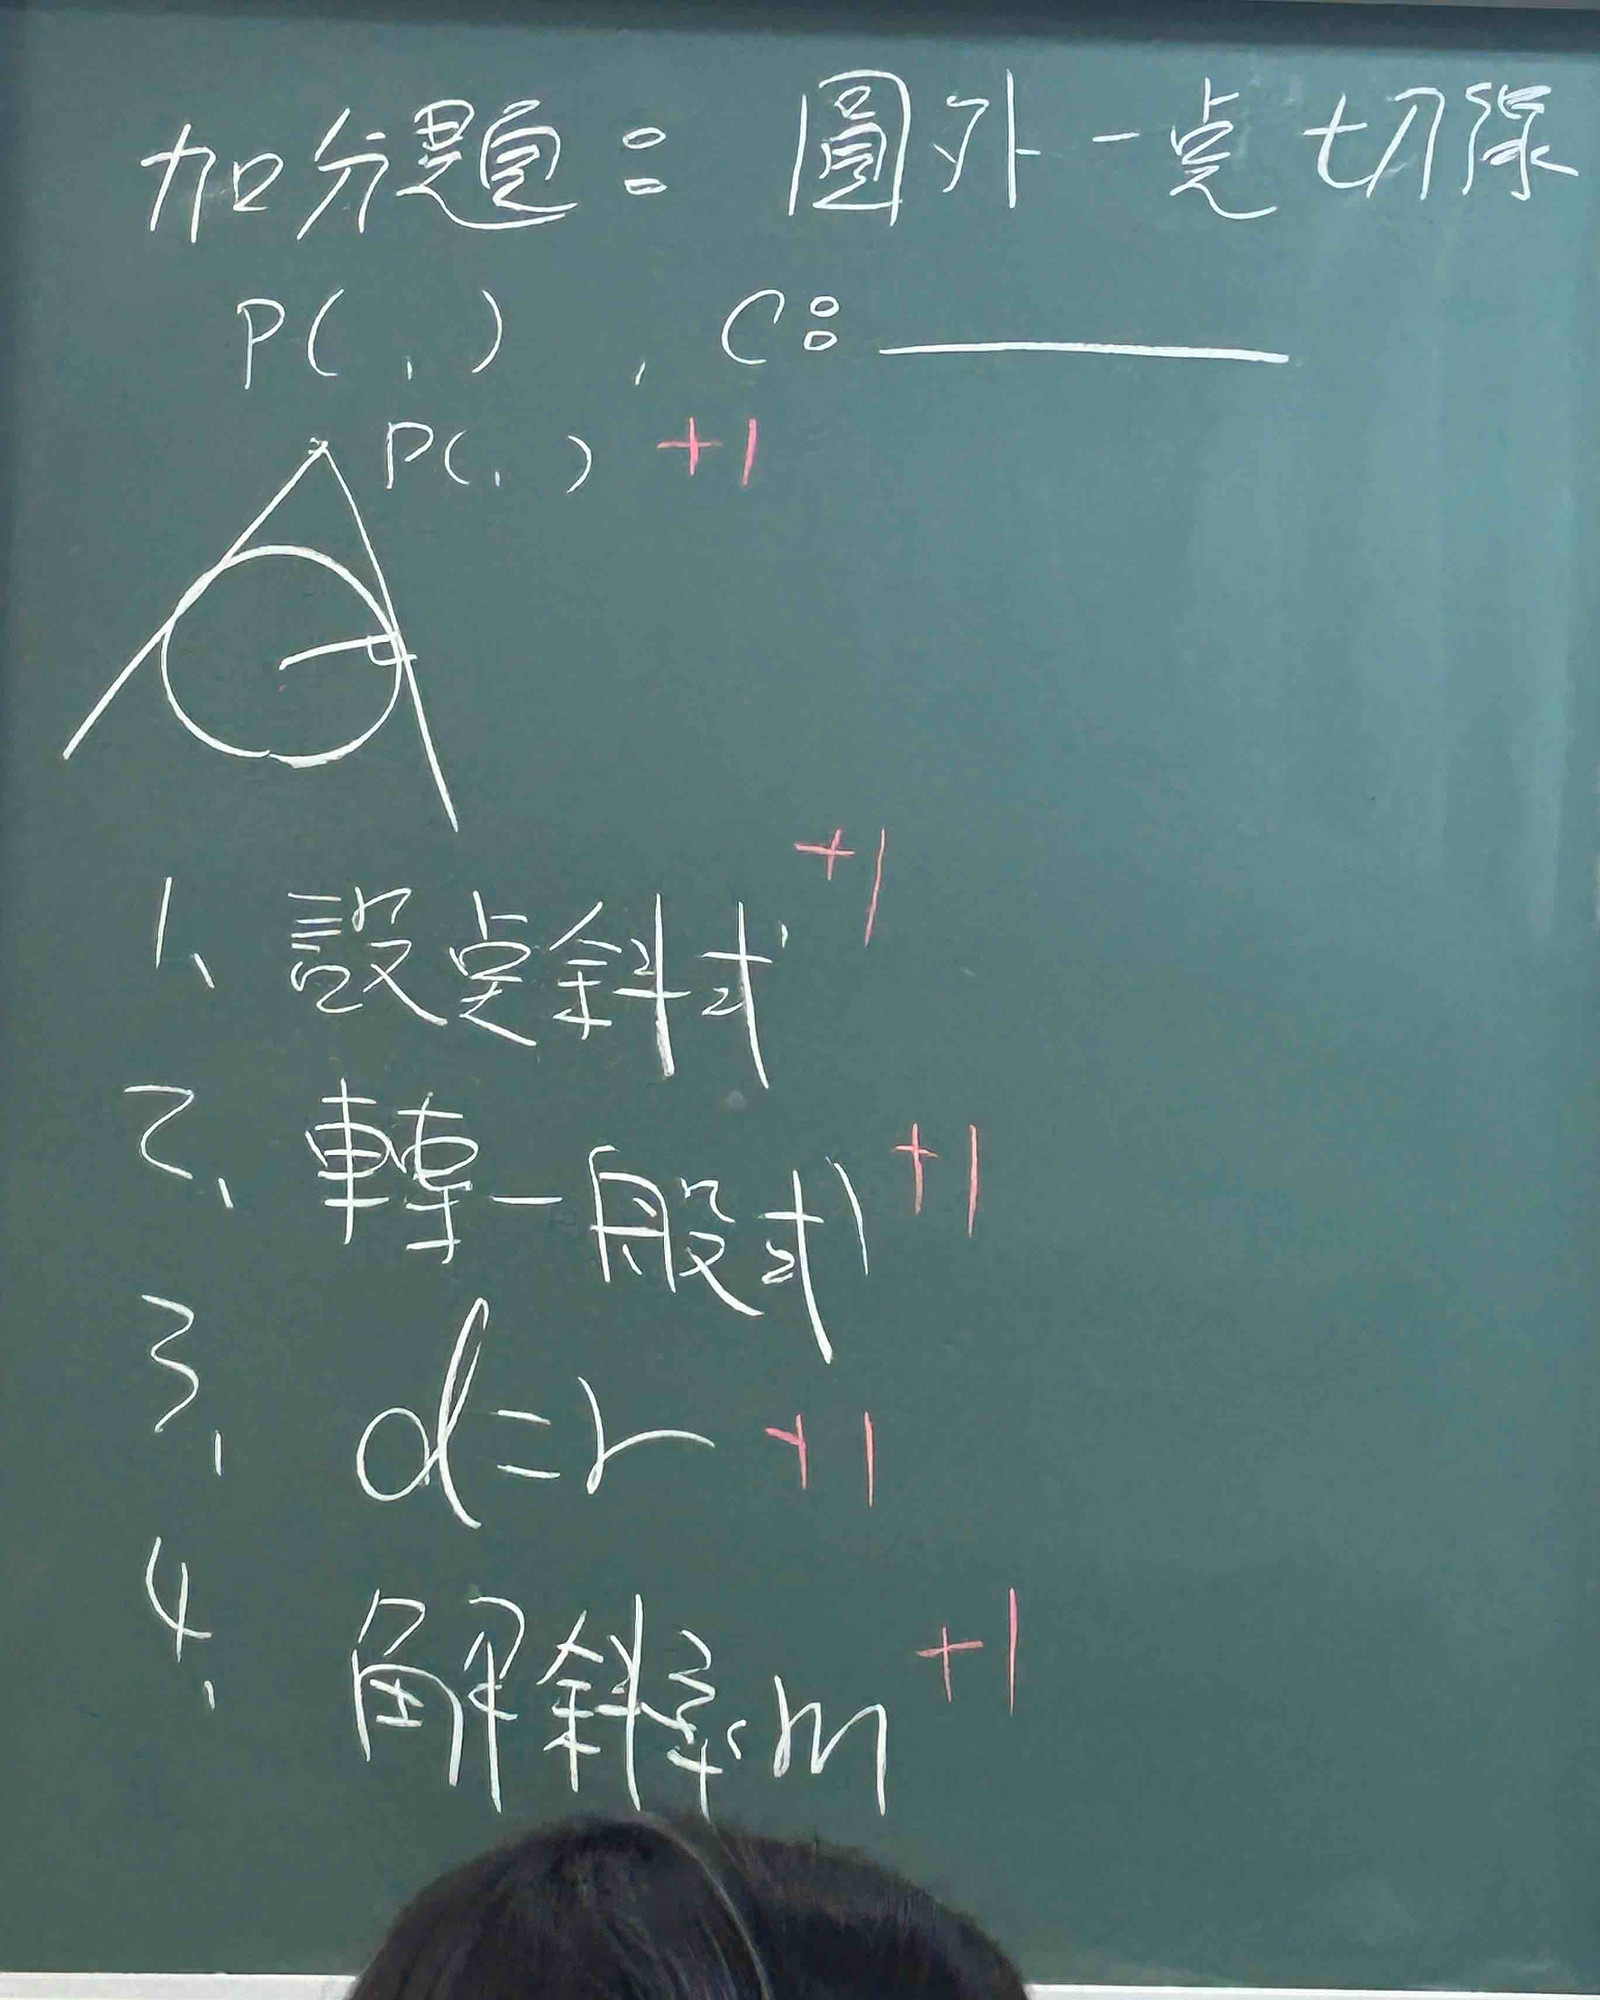 加分題：圓外一点切線
P( , ) , C：________
P( , ) +1
1、設点斜式 +1
2、轉一般式 +1
3、d=r +1
4、解斜率m +1